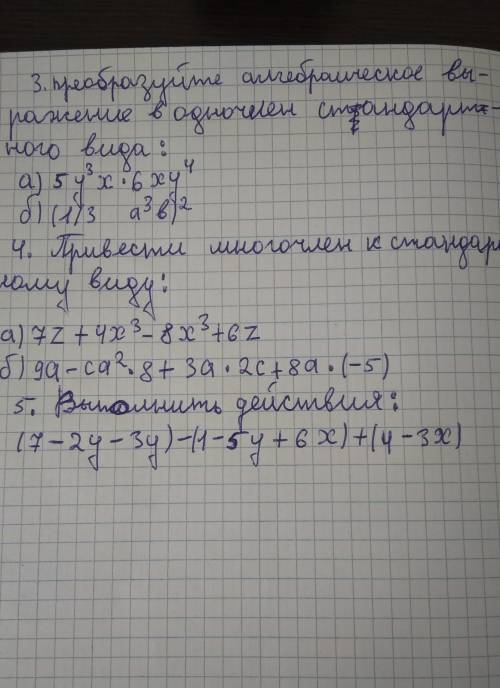 3. преобразуйте алгебраическое вы-
ражение в одночлен стандарт-
ного вида:
а) 5y³x · 6xy⁴
б) (1/3 a³в)²
4. Привести многочлен к стандар
ному виду:
а) 7z + 4x³ - 8x³ + 6z
б) 9a - ca² · 8 + 3a · 2c + 8a · (-5)
5. Выполнить действия:
(7 - 2y - 3y) - (1 - 5y + 6x) + (y - 3x)